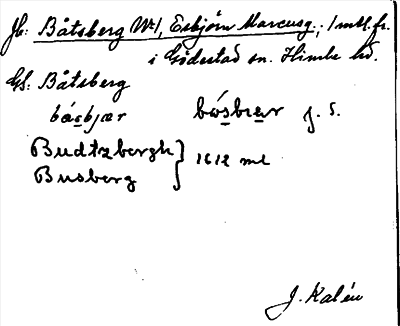 Jb: Båtsberg No 1, Esbjörn Marcusg.; 1 mtl. fr.
i Gödestad sn. Himle hd.
GS: Båtsberg
båsbjær bósbrær f. S.
Budtzbergh
Busberg } 1612 ml
J. Kalén